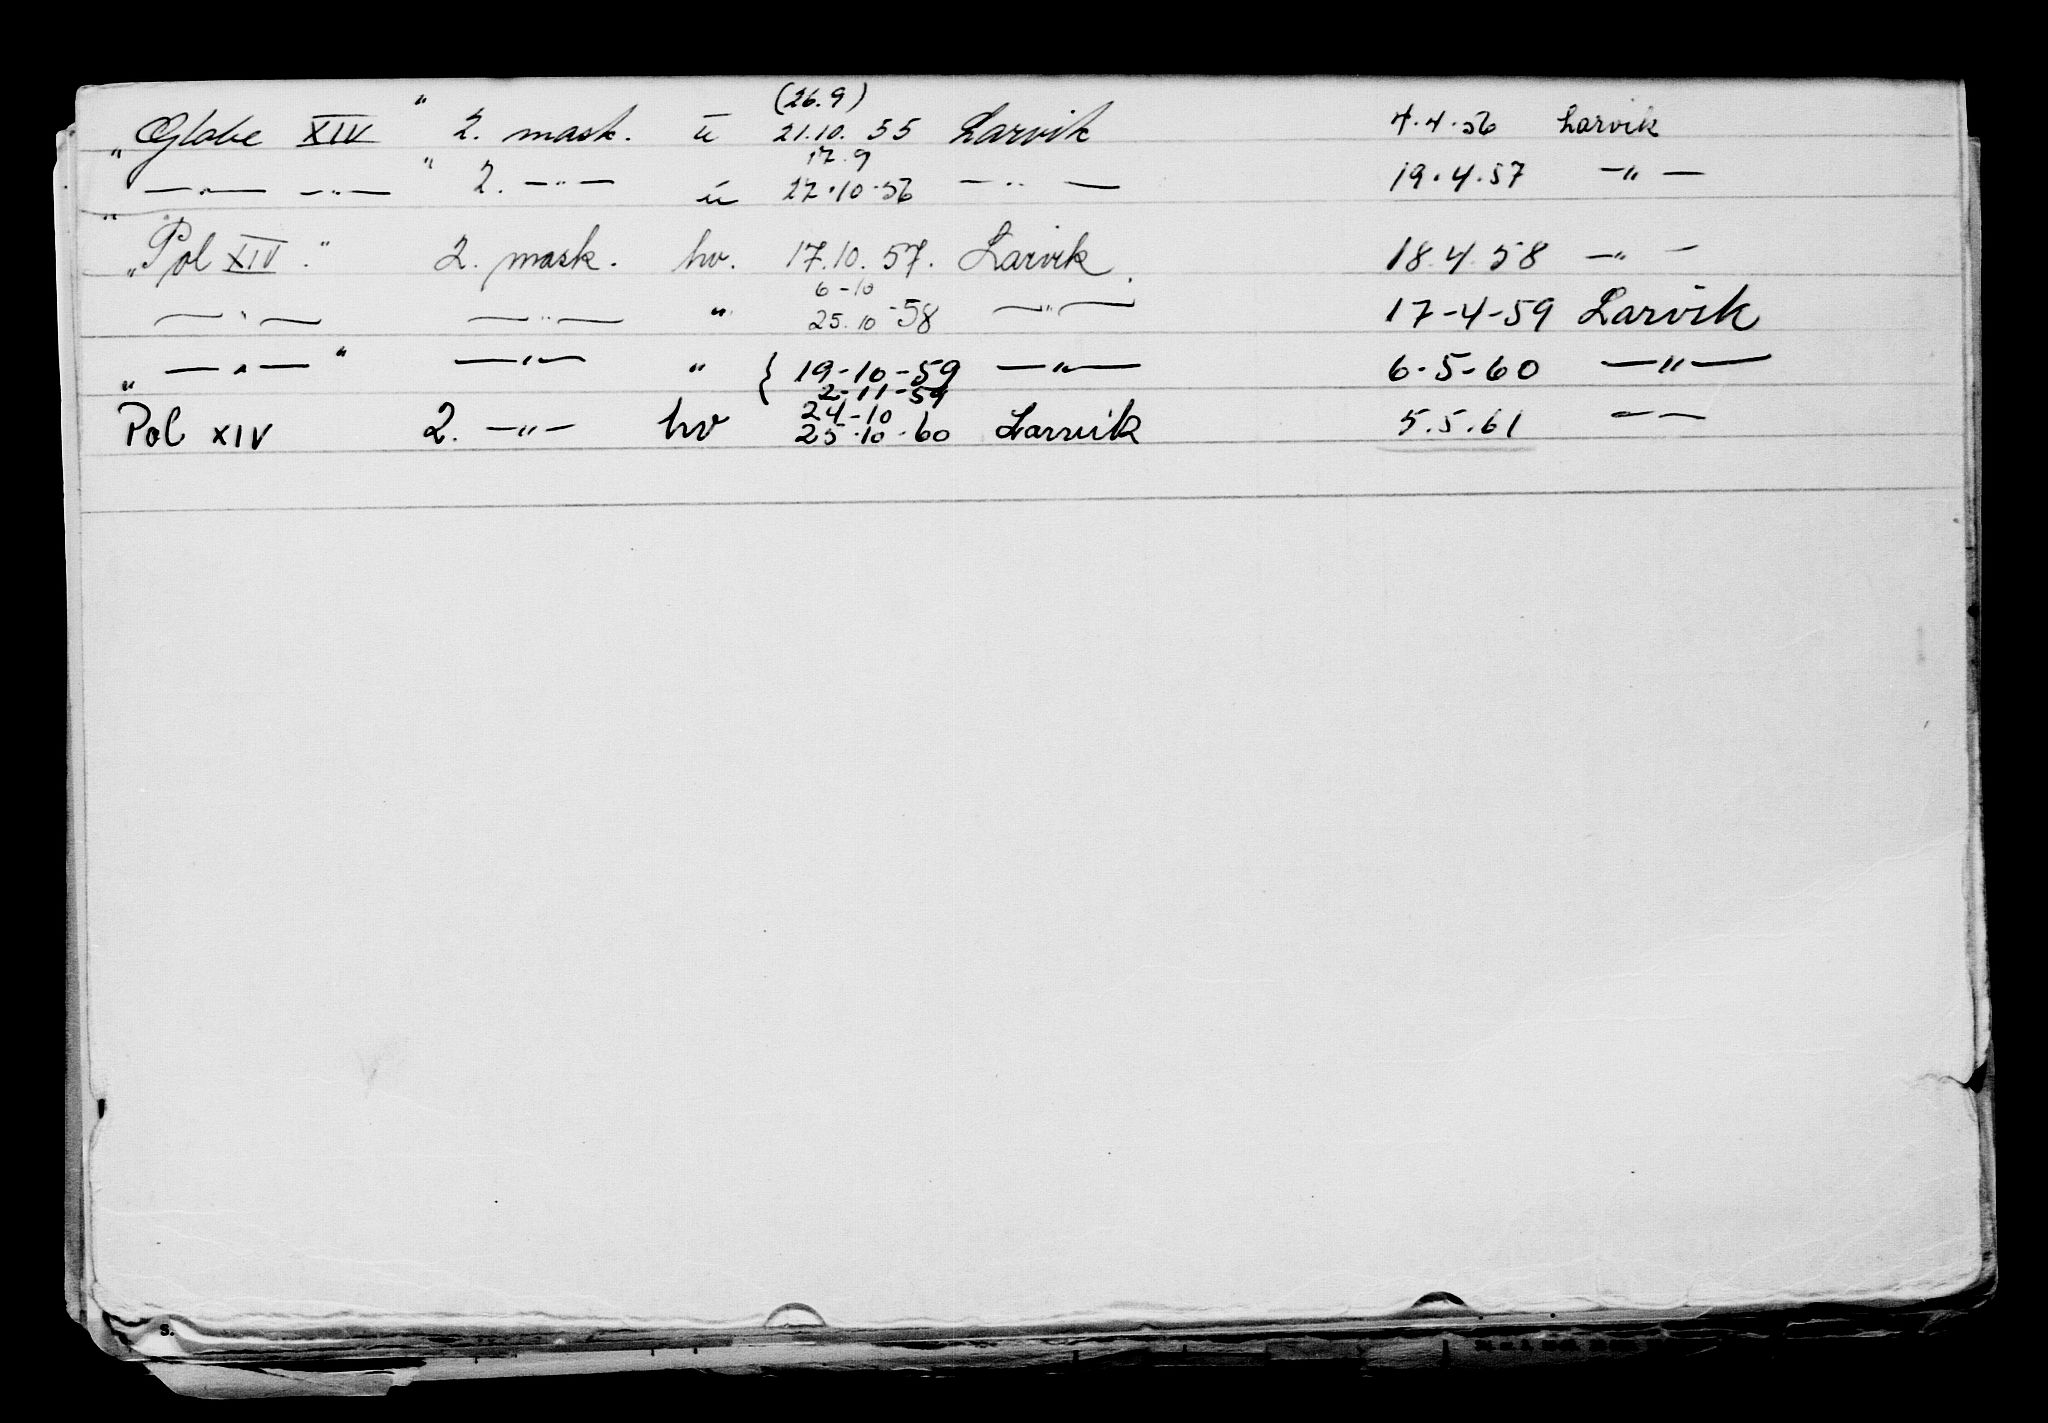 (26.9)
"Globe XIV" 2. mask. u 21.10.55 Larvik 4.4.56 Larvik
17.9
"—"— —"—" 2. —"— u 27.10.56 —"— 19.4.57 —"—
"Pol XIV." 2. mask. hv. 17.10.57. Larvik. 18.4.58 —"—
6-10
—"— —"— " 25.10-58 —"— 17-4-59 Larvik
"—"—" —"— " { 19-10-59 —"— 6-5-60 —"—
2-11-59
24-10
Pol XIV 2. —"— hv 25.10.60 Larvik 5.5.61 —"—
s.